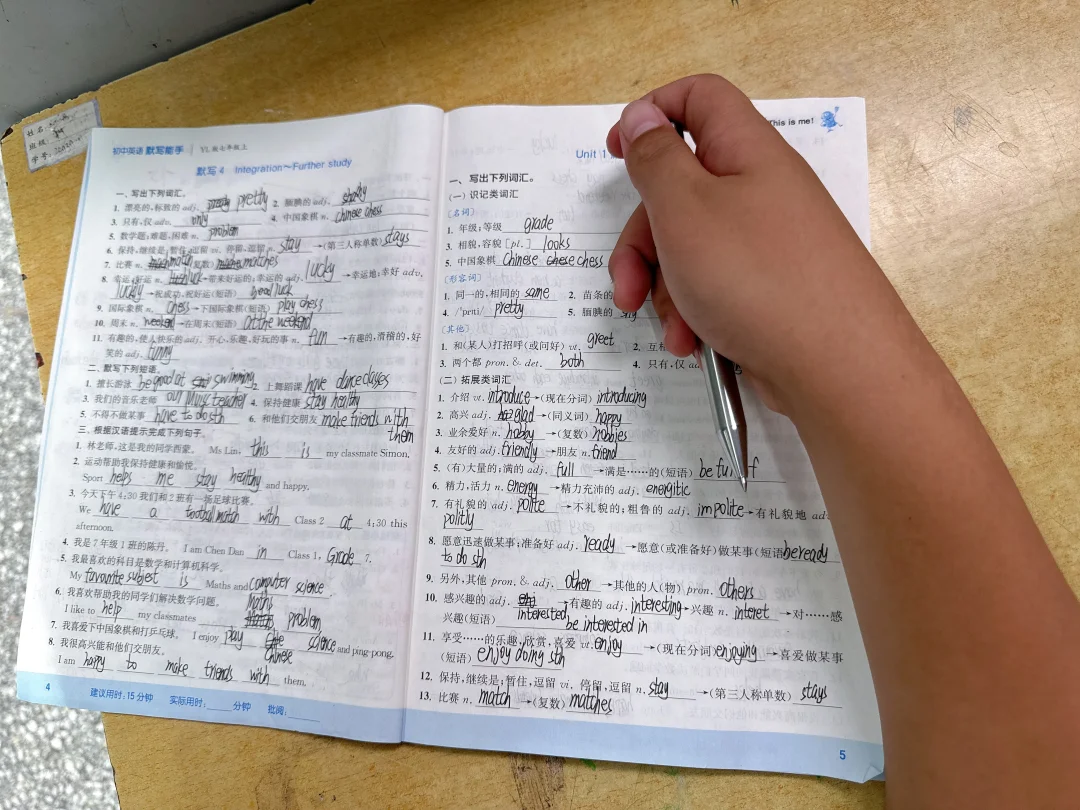 姓名
班级
学号
初中英语 默写能手 YL版七年级上
默写4 Integration～Further study
一、写出下列词汇。
1. 漂亮的,标致的 adj. pretty 2. 腼腆的 adj.
3. 只有,仅 adv. only 4. 中国象棋 n. chinese chess
5. 数学题;难题,困难 n. problem
6. 保持,继续是;暂住,逗留 vi. 停留,逗留 n. stay →(第三人称单数) stays
7. 比赛 n. match 复数) matches
8. 幸运,好运 n. luck →带来好运的;幸运的 adj. lucky →幸运地;幸好 adv.
luckly →祝成功,祝好运(短语) good luck
9. 国际象棋 n. chess →下国际象棋(短语) play chess
10. 周末 n. weekend →在周末(短语) at the weekend
11. 有趣的,使人快乐的 adj. 开心,乐趣,好玩的事 n. fun →有趣的,滑稽的,好
笑的 adj. funny
二、默写下列短语。
1. 擅长游泳 be good at swimming 2. 上舞蹈课 have dance classes
3. 我们的音乐老师 our music teacher 4. 保持健康 stay healthy
5. 不得不做某事 have to do sth 6. 和他们交朋友 make friends with
them
三、根据汉语提示完成下列句子。
1. 林老师,这是我的同学西蒙。 Ms Lin, this is my classmate Simon.
2. 运动帮助我保持健康和愉悦。
Sport helps me stay healthy and happy.
3. 今天下午4:30我们和2班有一场足球比赛。
We have a football match with Class 2 at 4:30 this
afternoon.
4. 我是7年级1班的陈丹。 I am Chen Dan in Class 1, Grade 7.
5. 我最喜欢的科目是数学和计算机科学。
My favourite subject is Maths and computer science
6. 我喜欢帮助我的同学们解决数学问题。
I like to help my classmates maths problem
7. 我喜爱下中国象棋和打乒乓球。 I enjoy play chinese science and ping-pong.
8. 我很高兴能和他们交朋友。
I am happy to make friends with them.
4 建议用时:15分钟 实际用时:____分钟 批阅:____
This is me!
Unit 1
一、写出下列词汇。
(一) 识记类词汇
[名词]
1. 年级;等级 grade
3. 相貌,容貌 [pl.] looks
5. 中国象棋 Chinese chess
[形容词]
1. 同一的,相同的 same 2. 苗条的
4. /ˈprɪti/ pretty 5. 腼腆的 shy
[其他]
1. 和(某人)打招呼(或问好) vt. greet 2. 互相
3. 两个都 pron. & det. both 4. 只有,仅
(二) 拓展类词汇
1. 介绍 vt. introduce →(现在分词) introducing
2. 高兴 adj. glad →(同义词) happy
3. 业余爱好 n. hobby →(复数) hobbies
4. 友好的 adj. friendly →朋友 n. friend
5. (有)大量的;满的 adj. full →满是……的(短语) be full of
6. 精力,活力 n. energy →精力充沛的 adj. energitic
7. 有礼貌的 adj. polite →不礼貌的;粗鲁的 adj. impolite →有礼貌地 adv.
politly
8. 愿意迅速做某事;准备好 adj. ready →愿意(或准备好)做某事(短语) be ready
to do sth
9. 另外,其他 pron. & adj. other →其他的人(物) pron. others
10. 感兴趣的 adj. interested →有趣的 adj. interesting →兴趣 n. intret →对……感
兴趣(短语) be interested in
11. 享受……的乐趣,欣赏,喜爱 vt. enjoy →(现在分词) enjoying →喜爱做某事
(短语) enjoy doing sth
12. 保持,继续是;暂住,逗留 vi. 停留,逗留 n. stay →(第三人称单数) stays
13. 比赛 n. match →(复数) matches
5